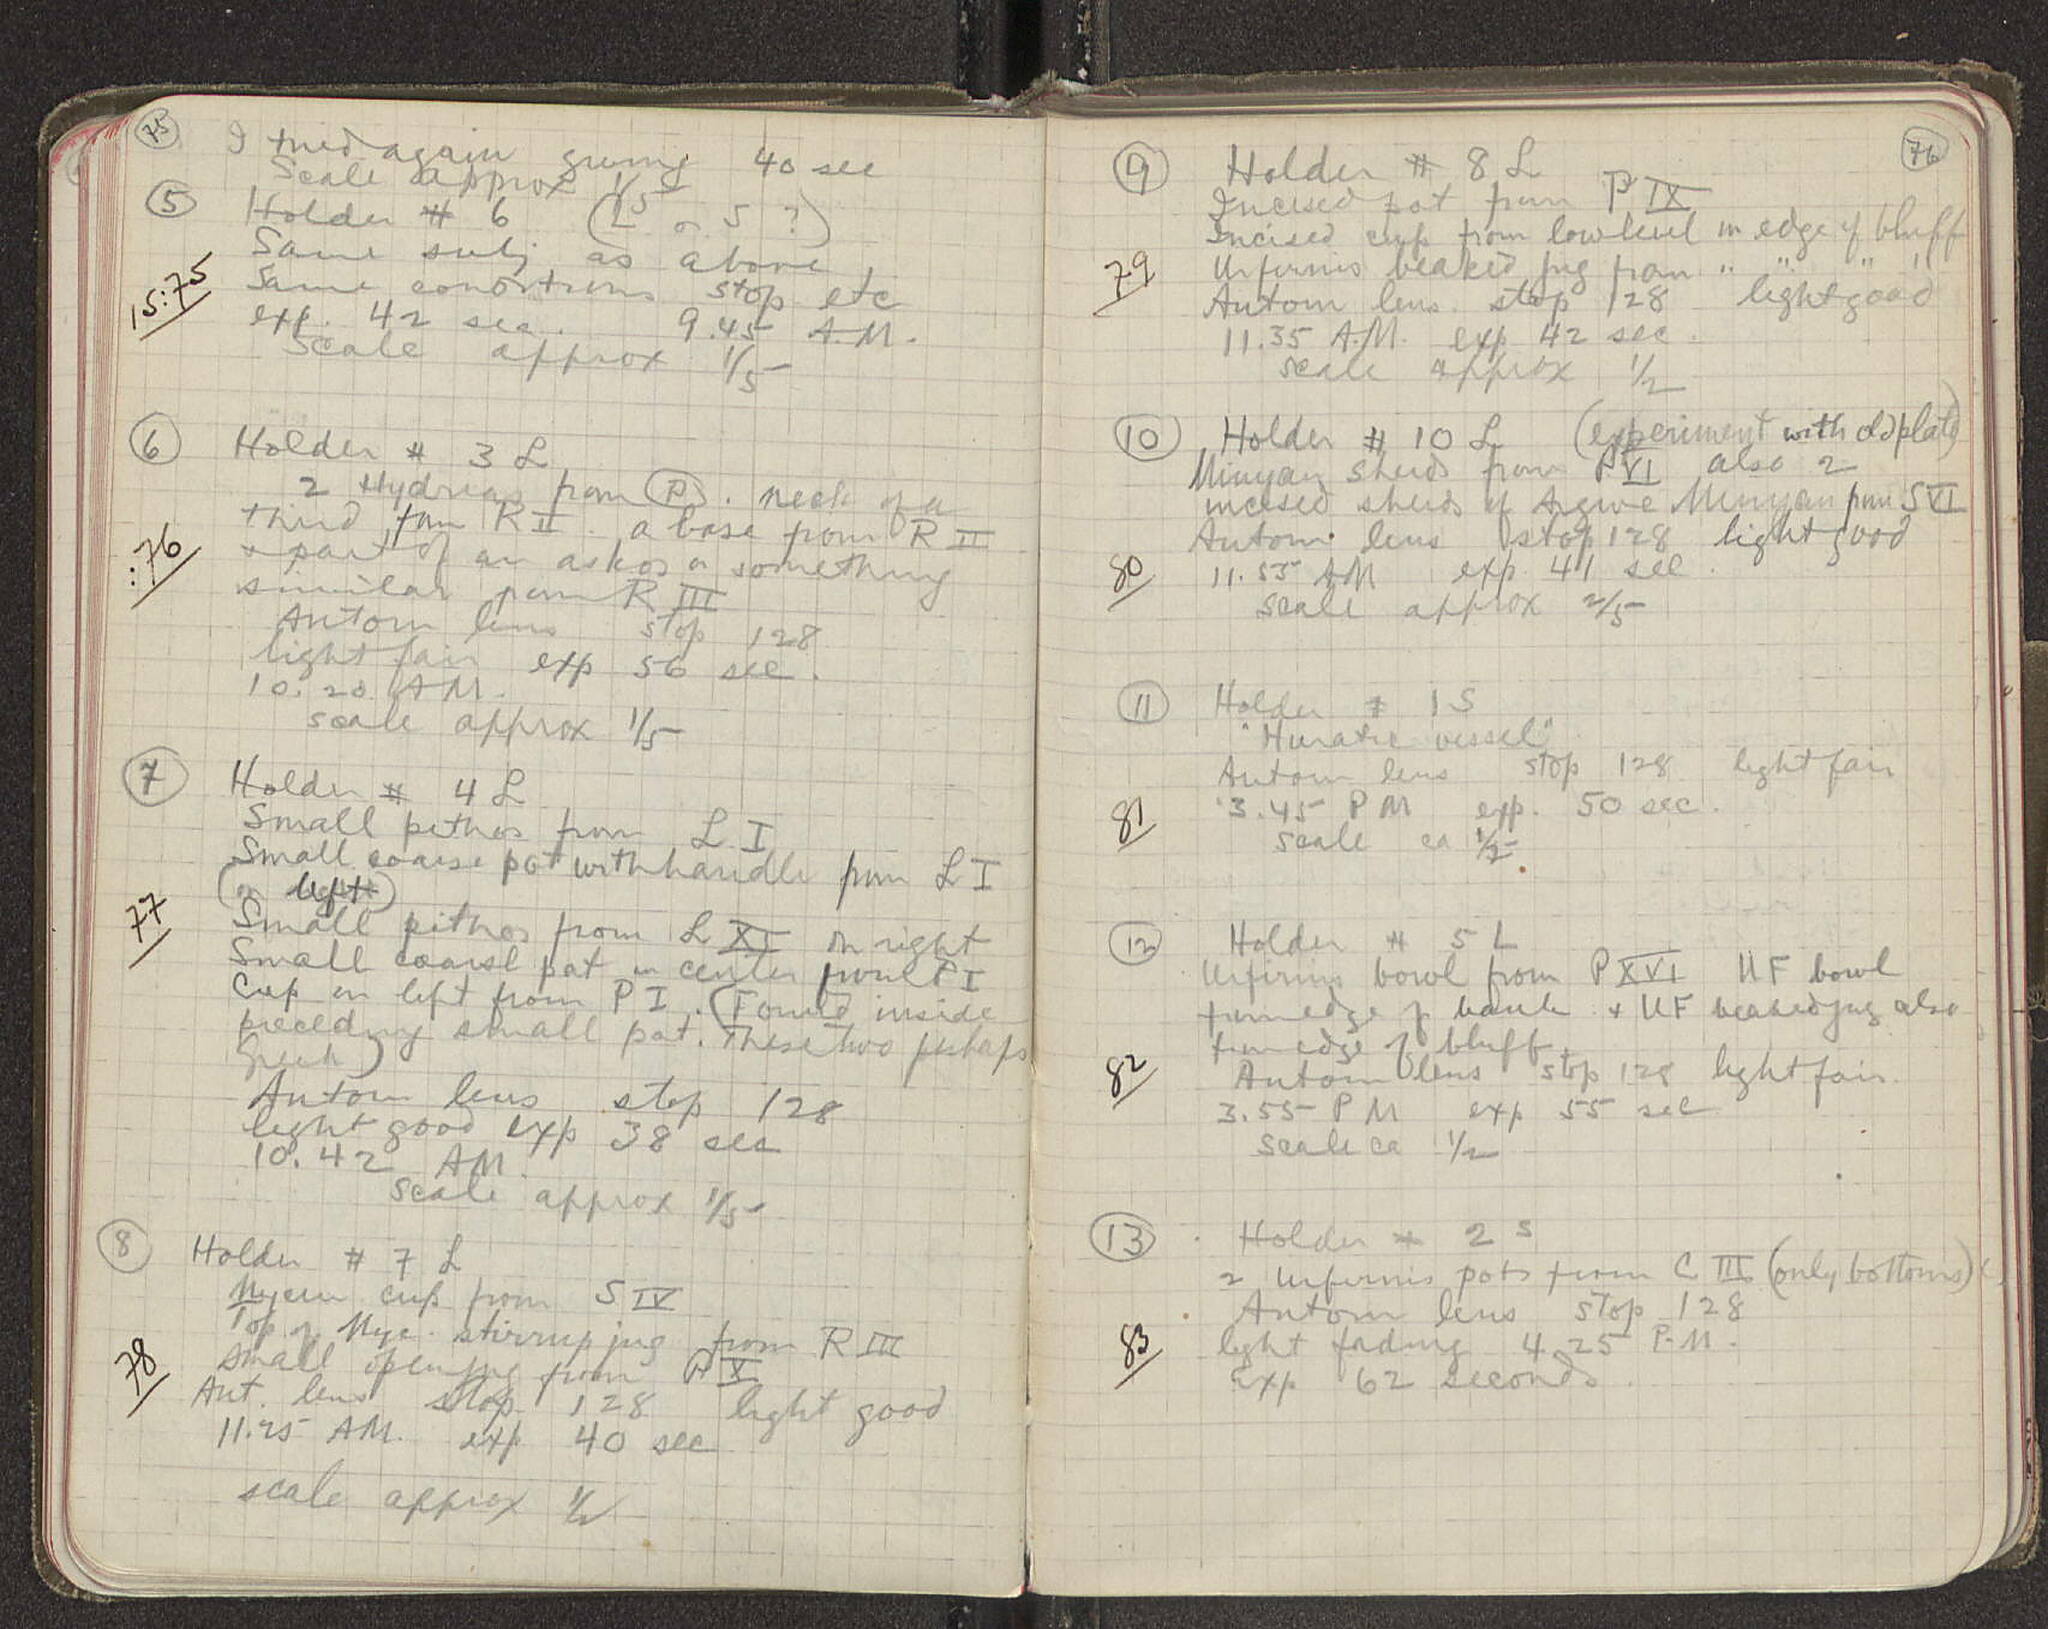 75
I tried again giving 40 sec
Scale approx 1/5
5 Holder # 6 (L5 or 5 ?)
Same subj as above
15:75
Same conditions stop etc
exp. 42 sec. 9.45 A.M.
Scale approx 1/5
6 Holder # 3 L
2 Hydrias from P. neck of a
third from R II. a base from R II
:76
+ part of an askos or something
similar from R III
Autom lens stop 128
light fair exp 56 sec.
10.20 AM.
scale approx 1/5
7 Holder # 4 L
Small pithos from L I
Small coarse pot with handle from L I
(on left)
77
Small pithos from L XI on right
Small coarse pot in center from P I
Cup on left from P I. (Found inside
preceding small pot. These two perhaps
Greek)
Autom lens stop 128
light good exp 38 sec
10.42 AM.
scale approx 1/5
8 Holder # 7 L
Mycen cup from S IV
Top of Myc. stirrup jug from R III
78
small open jug from P X
Aut. lens stop 128 light good
11.25 AM. exp 40 sec
scale approx 1/2
76
9 Holder # 8 L
Incised pot from P IX
Incised cup from low level in edge of bluff
79
Urfirnis beaked jug from " " " "
Autom lens stop 128 light good
11.35 A.M. exp 42 sec.
scale approx 1/2
10 Holder # 10 L (experiment with old plate)
Minyan sherds from P VI also 2
incised sherds of Argive Minyan from S VI
Autom. lens stop 128 light good
80
11.55 AM exp. 41 sec.
scale approx 2/5
11 Holder # 1 S
"Hieratic vessel"
Autom lens stop 128 light fair
81
3.45 PM exp. 50 sec.
scale ca 1/2
12 Holder # 5 L
Urfirnis bowl from P XVI UF bowl
from edge of bank + UF beaked jug also
from edge of bluff
82
Autom lens stop 128 light fair
3.55 PM exp 55 sec
scale ca 1/2
13 Holder # 2 S
2 Urfirnis pots from C III (only bottoms)
Autom lens stop 128
83
light fading 4.25 P.M.
Exp 62 seconds.